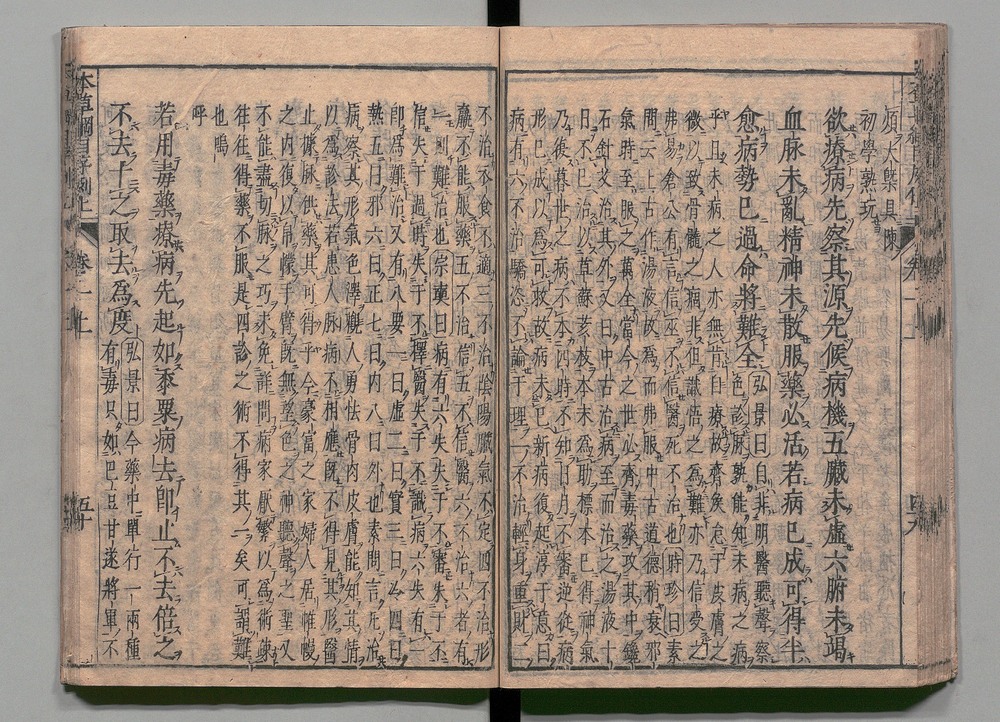 須大槩具陳
初學熟玩
欲療病先察其源先候病機五臟未虛六腑未竭
血脉未亂精神未散服藥必活若病已成可得半
愈病勢已過命將難全弘景曰自非明醫聽聲察
色診脉孰能知未病之病
乎且未病之人亦無肯自療故齊矦怠于皮膚之
微以致骨髓之痼非但識悟之為難亦乃信受之
弗易倉公有言信巫不信醫死不治也時珍曰素
問云上古作湯液故為而弗服中古道德稍衰邪
氣時至服之萬全當今之世必齊毒藥攻其中鑱
石針艾治其外又曰中古治病至而治之湯液十
日不已治以草蘇荄枝本末為助標本已得邪氣
乃服暮世之病不本四時不知日月不審逆從病
形已成以為可救故病未已新病復起淳于意曰
病有六不治驕恣不論于理一不治輕身重財二
不治衣食不適三不治陰陽臟氣不定四不治形
羸不能服藥五不治信巫不信醫六不治六者有
一則難治也宗奭曰病有六失失于不審失于不
信失于過時失于不擇醫失于不識病六失有一
即為難治又有八要一曰虛二曰實三曰冷四曰
熱五曰邪六曰正七曰內八曰外也素問言凡治
病察其形氣色澤觀人勇怯骨肉皮膚能知其情
以為診法若患人脉病不相應既不得見其形醫
止據脉供藥其可得乎今豪富之家婦人居帷幔
之內復以帛幪手臂既無望色之神聽聲之聖又
不能盡切脉之巧未免詳問病家厭繁以為術疎
往往得藥不服是四診之術不得其一矣可謂難
也嗚
呼
若用毒藥療病先起如黍粟病去即止不去倍之
不去十之取去為度弘景曰今藥中單行一兩種
有毒只如巴豆甘遂將軍不
本草綱目序例上 卷一上 五十